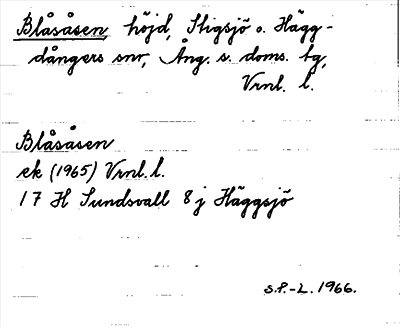 Blåsåsen, höjd, Stigsjö o. Hägg-
dångers snr, Ång. s. doms. tg,
Vrnl. l.
Blåsåsen
ek (1965) Vrnl. l.
17 H Sundsvall 8 j Häggsjö
S.P.-L. 1966.